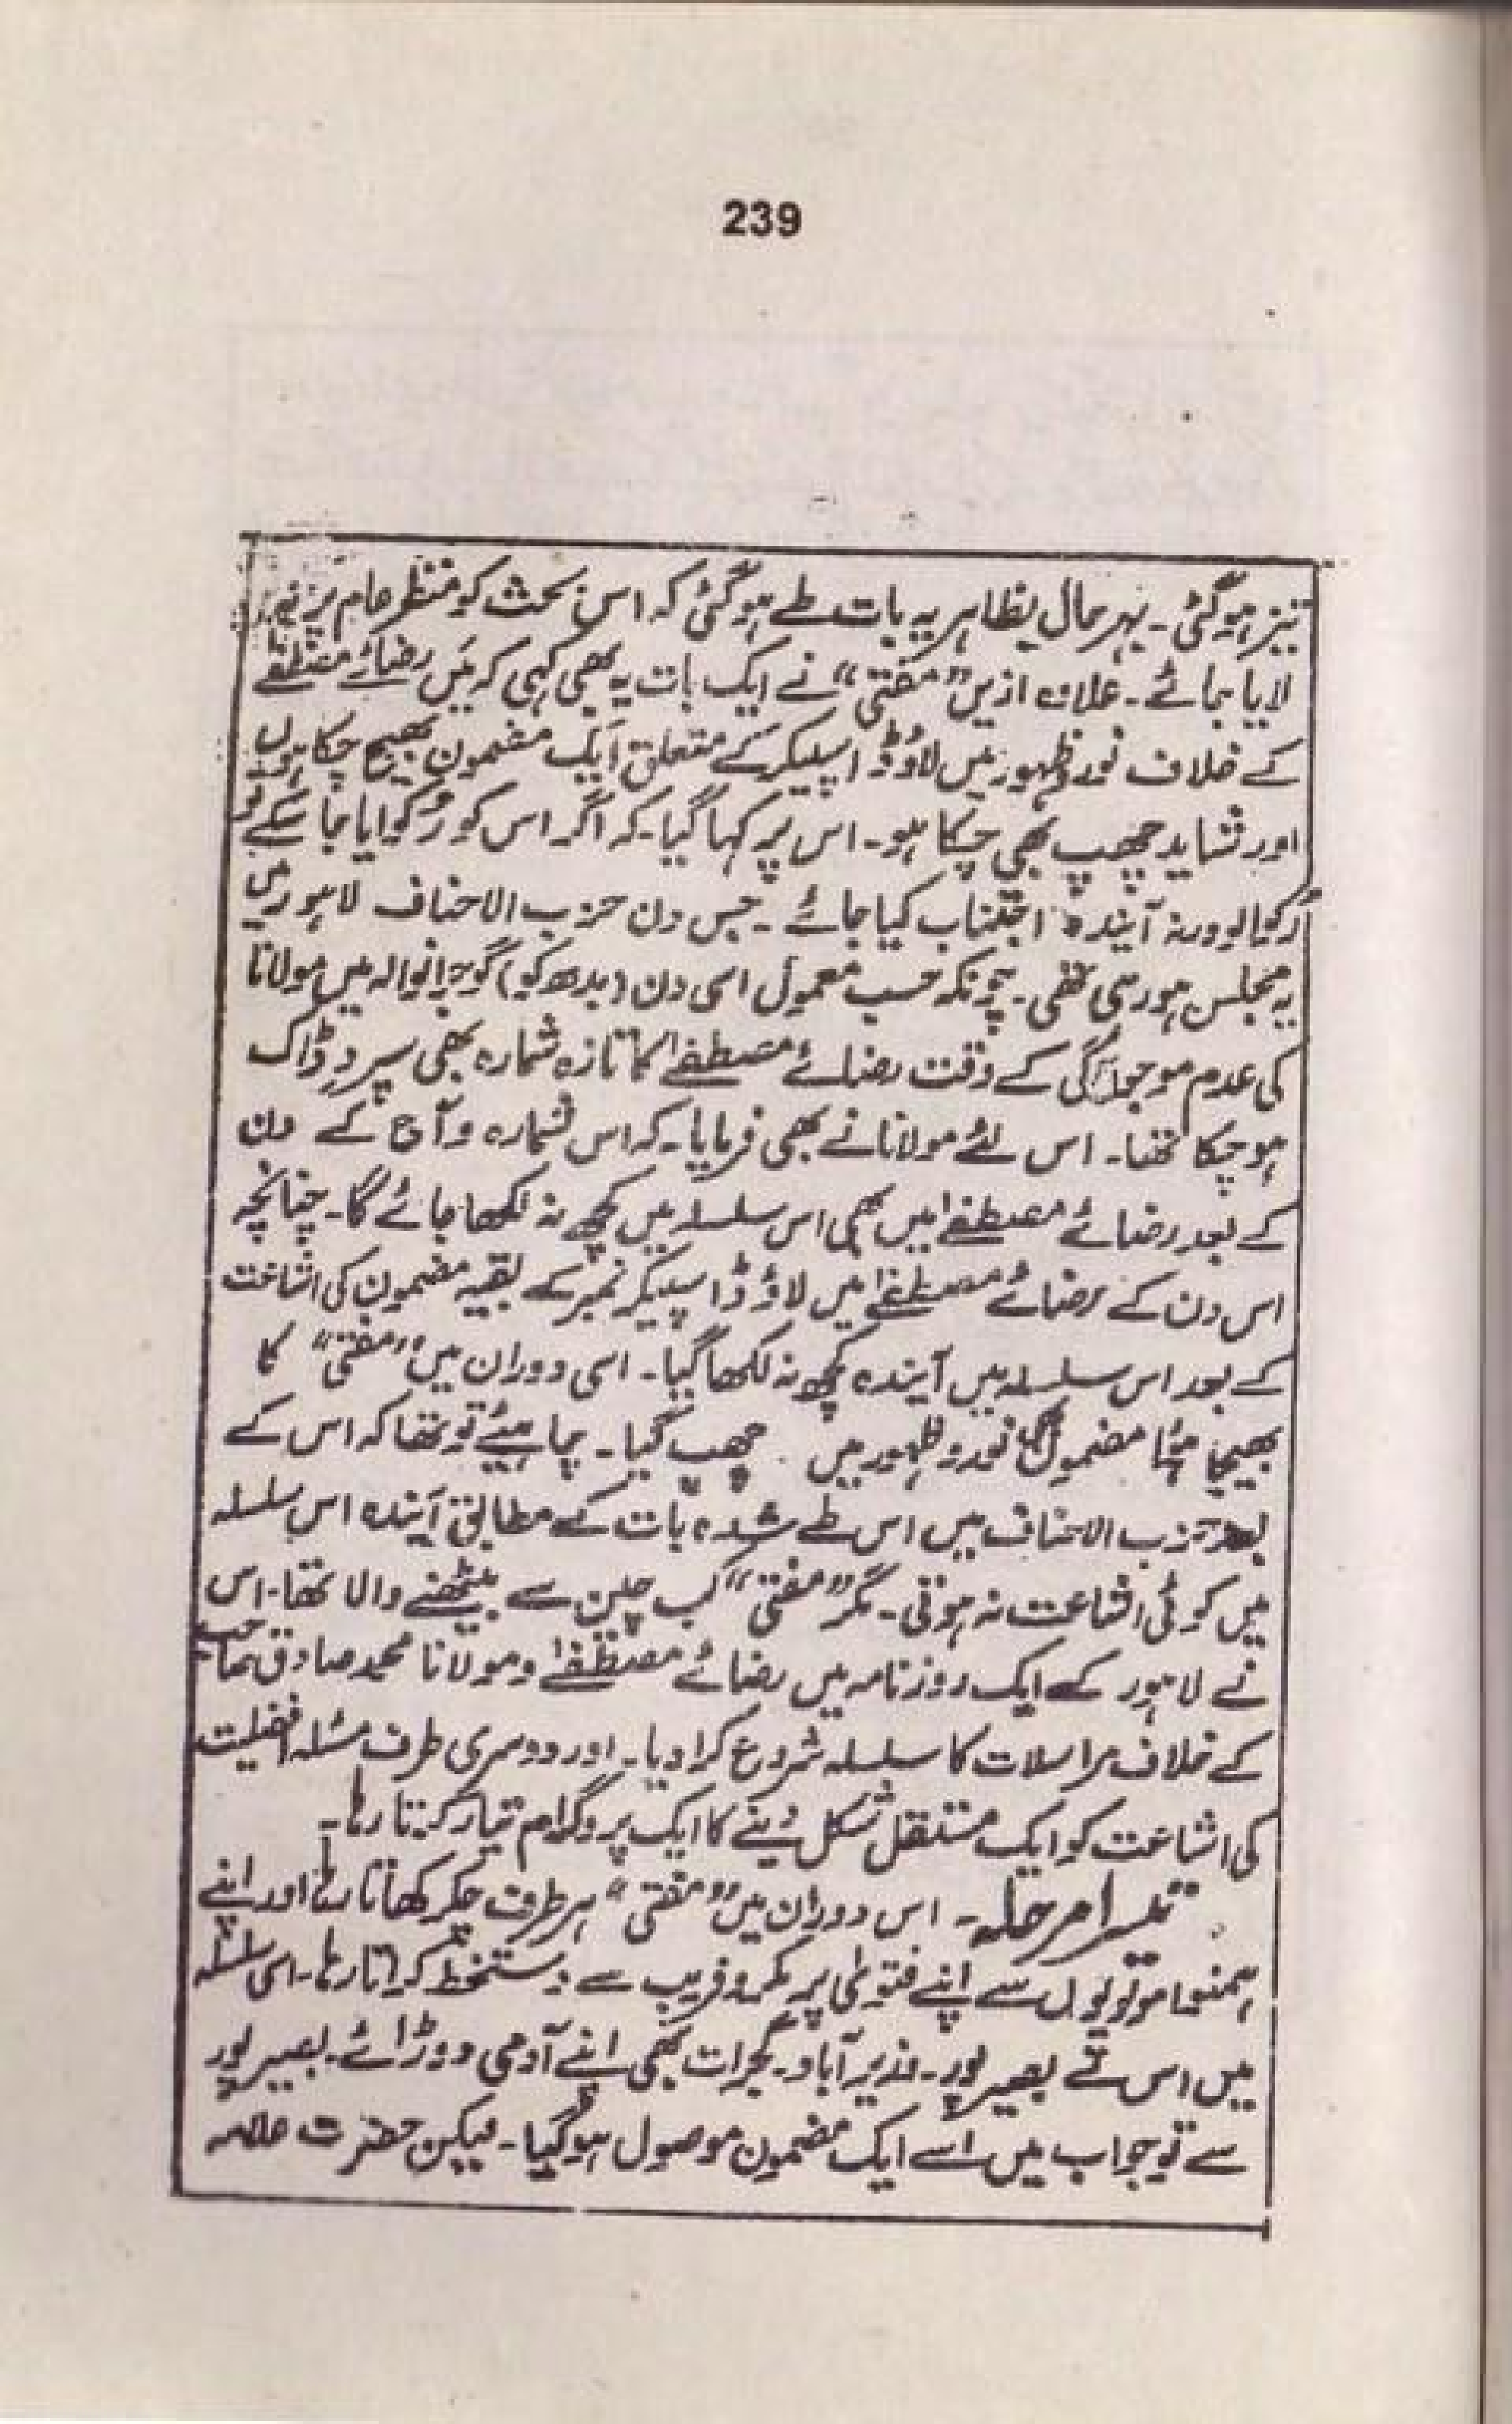 239
تیز ہوگئی۔ بہر حال بظاہر یہ بات طے ہوگئی کہ اس بحث کو منظر عام پر نہ
لایا جائے۔ علاوہ ازیں ”مفتی“ نے ایک بات یہ بھی کہی کہ میں رضائے مصطفےٰ
کے خلاف نور و ظہور میں لاؤڈ اسپیکر کے متعلق ایک مضمون بھیج چکا ہوں
اور شاید چھپ بھی چکا ہو۔ اس پر کہا گیا۔ کہ اگر اس کو رُکوایا جا سکے تو
رُکوا لو ورنہ آیندہ اجتناب کیا جائے۔ جس دن حزب الاحناف لاہور میں
یہ مجلس ہو رہی تھی۔ چونکہ حسب معمول اسی دن (بدھ کو) گوجرانوالہ میں مولانا
کی عدم موجودگی کے وقت رضائے مصطفےٰ کا تازہ شمارہ بھی سپردِ ڈاک
ہو چکا تھا۔ اس لئے مولانا نے بھی فرمایا۔ کہ اس شمارہ و آج کے دن
کے بعد رضائے مصطفےٰ میں بھی اس سلسلہ میں کچھ نہ لکھا جائے گا۔ چنانچہ
اس دن کے رضائے مصطفےٰ میں لاؤڈ اسپیکر نمبر کے بقیہ مضمون کی اشاعت
کے بعد اس سلسلہ میں آیندہ کچھ نہ لکھا گیا۔ اسی دوران میں ”مفتی“ کا
بھیجا ہوُا مضمون بھی نور و ظہور میں چھپ گیا۔ چاہیئے تو تھا کہ اس کے
بعد حزب الاحناف میں اس طے شدہ بات کے مطابق آیندہ اس سلسلہ
میں کوئی اشاعت نہ ہوتی۔ مگر ”مفتی“ کب چین سے بیٹھنے والا تھا۔ اس
نے لاہور کے ایک روزنامہ میں رضائے مصطفےٰ و مولانا محمد صادق صاحب
کے خلاف مراسلات کا سلسلہ شروع کرا دیا۔ اور دوسری طرف مسئلہ افضلیت
کی اشاعت کو ایک مستقل شکل دینے کا ایک پروگرام تیار کرتا رہا۔
تیسرا مرحلہ۔ اس دوران میں ”مفتی“ ہر طرف چکر کھاتا رہا اور اپنے
ہمنوا مولویوں سے اپنے فتویٰ پر مکر و فریب سے دستخط کراتا رہا۔ اسی سلسلہ
میں اس نے بصیر پور۔ وزیر آباد۔ گجرات بھی اپنے آدمی دوڑائے۔ بصیر پور
سے تو جواب میں اسے ایک مضمون موصول ہو گیا۔ لیکن حضرت علامہ